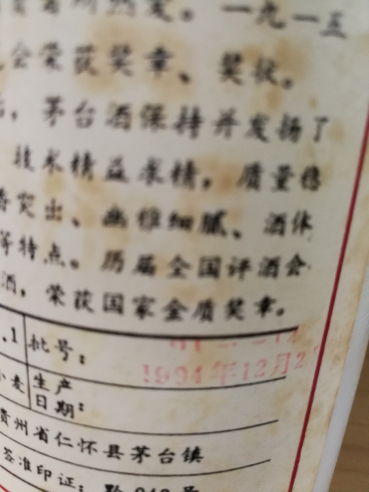 。一九一五
会荣获奖章、奖状。
，茅台酒保持并发扬了
技术精益求精，质量稳
突出、幽雅细腻、酒体
等特点。历届全国评酒会
酒，荣获国家金质奖章。
.1 批号：
小麦 生产日期： 1994年12月2
贵州省仁怀县茅台镇
签准印证：黔